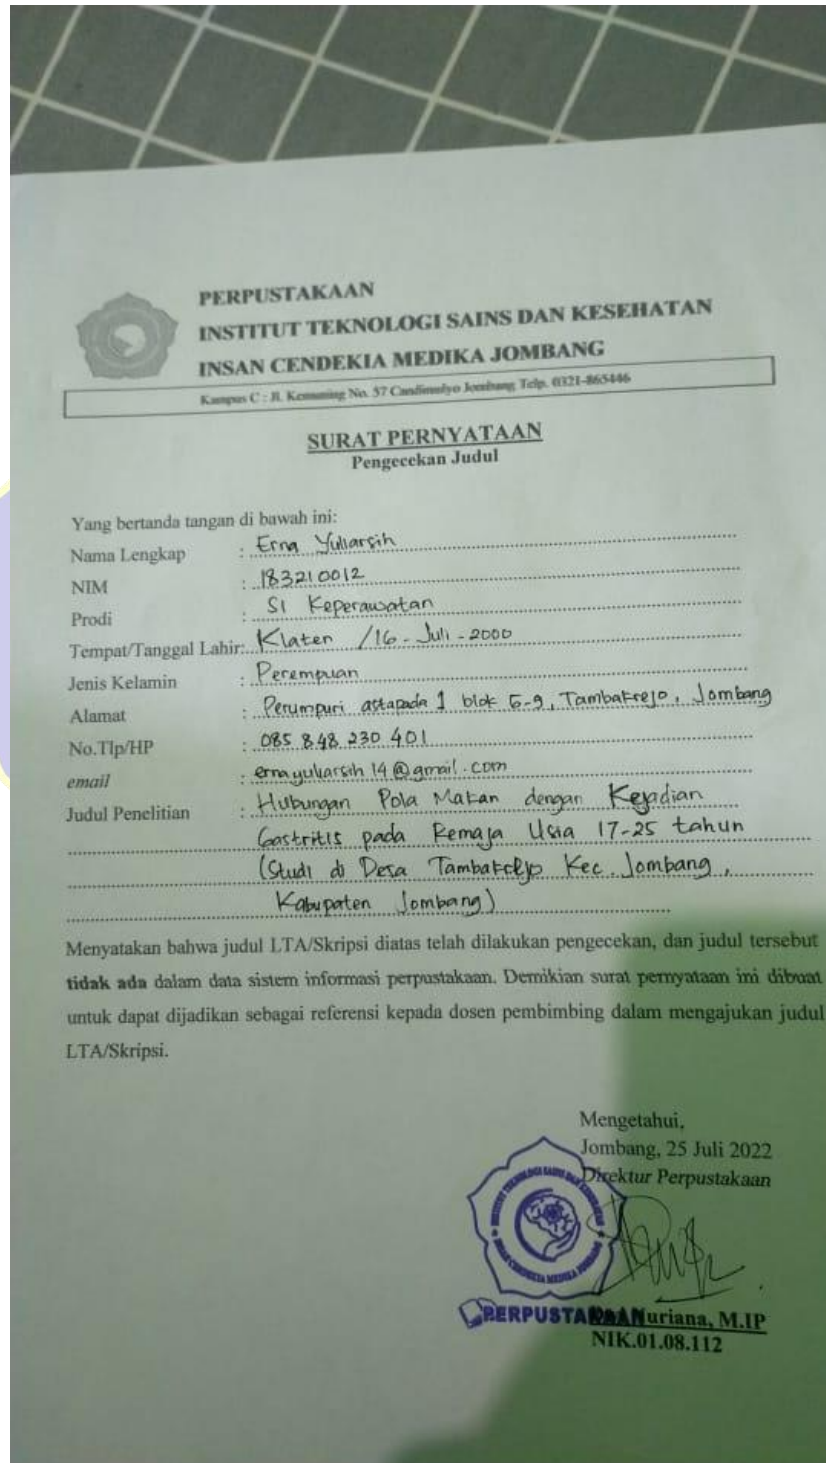 PERPUSTAKAAN
INSTITUT TEKNOLOGI SAINS DAN KESEHATAN
INSAN CENDEKIA MEDIKA JOMBANG
Kampus C : Jl. Kemuning No. 57 Candimulyo Jombang Telp. 0321-865446
SURAT PERNYATAAN
Pengecekan Judul
Yang bertanda tangan di bawah ini:
Nama Lengkap : Erna Yuliarsih
NIM : 183210012
Prodi : S1 Keperawatan
Tempat/Tanggal Lahir: Klaten /16-Juli-2000
Jenis Kelamin : Perempuan
Alamat : Perumpuri astapada 1 blok , Tambakrejo, Jombang
No.Tlp/HP : 085 848 230 401
email : ernayuliarsih14@gmail.com
Judul Penelitian : Hubungan Pola Makan dengan Kejadian
Gastritis pada Remaja Usia 17-25 tahun
(Studi di Desa Tambakrejo Kec. Jombang,
Kabupaten Jombang)
Menyatakan bahwa judul LTA/Skripsi diatas telah dilakukan pengecekan, dan judul tersebut
tidak ada dalam data sistem informasi perpustakaan. Demikian surat pernyataan ini dibuat
untuk dapat dijadikan sebagai referensi kepada dosen pembimbing dalam mengajukan judul
LTA/Skripsi.
Mengetahui,
Jombang, 25 Juli 2022
Direktur Perpustakaan
INSTITUT TEKNOLOGI SAINS DAN KESEHATAN
INSAN CENDEKIA MEDIKA JOMBANG
PERPUSTAKAAN
Nuriana, M.IP
NIK.01.08.112